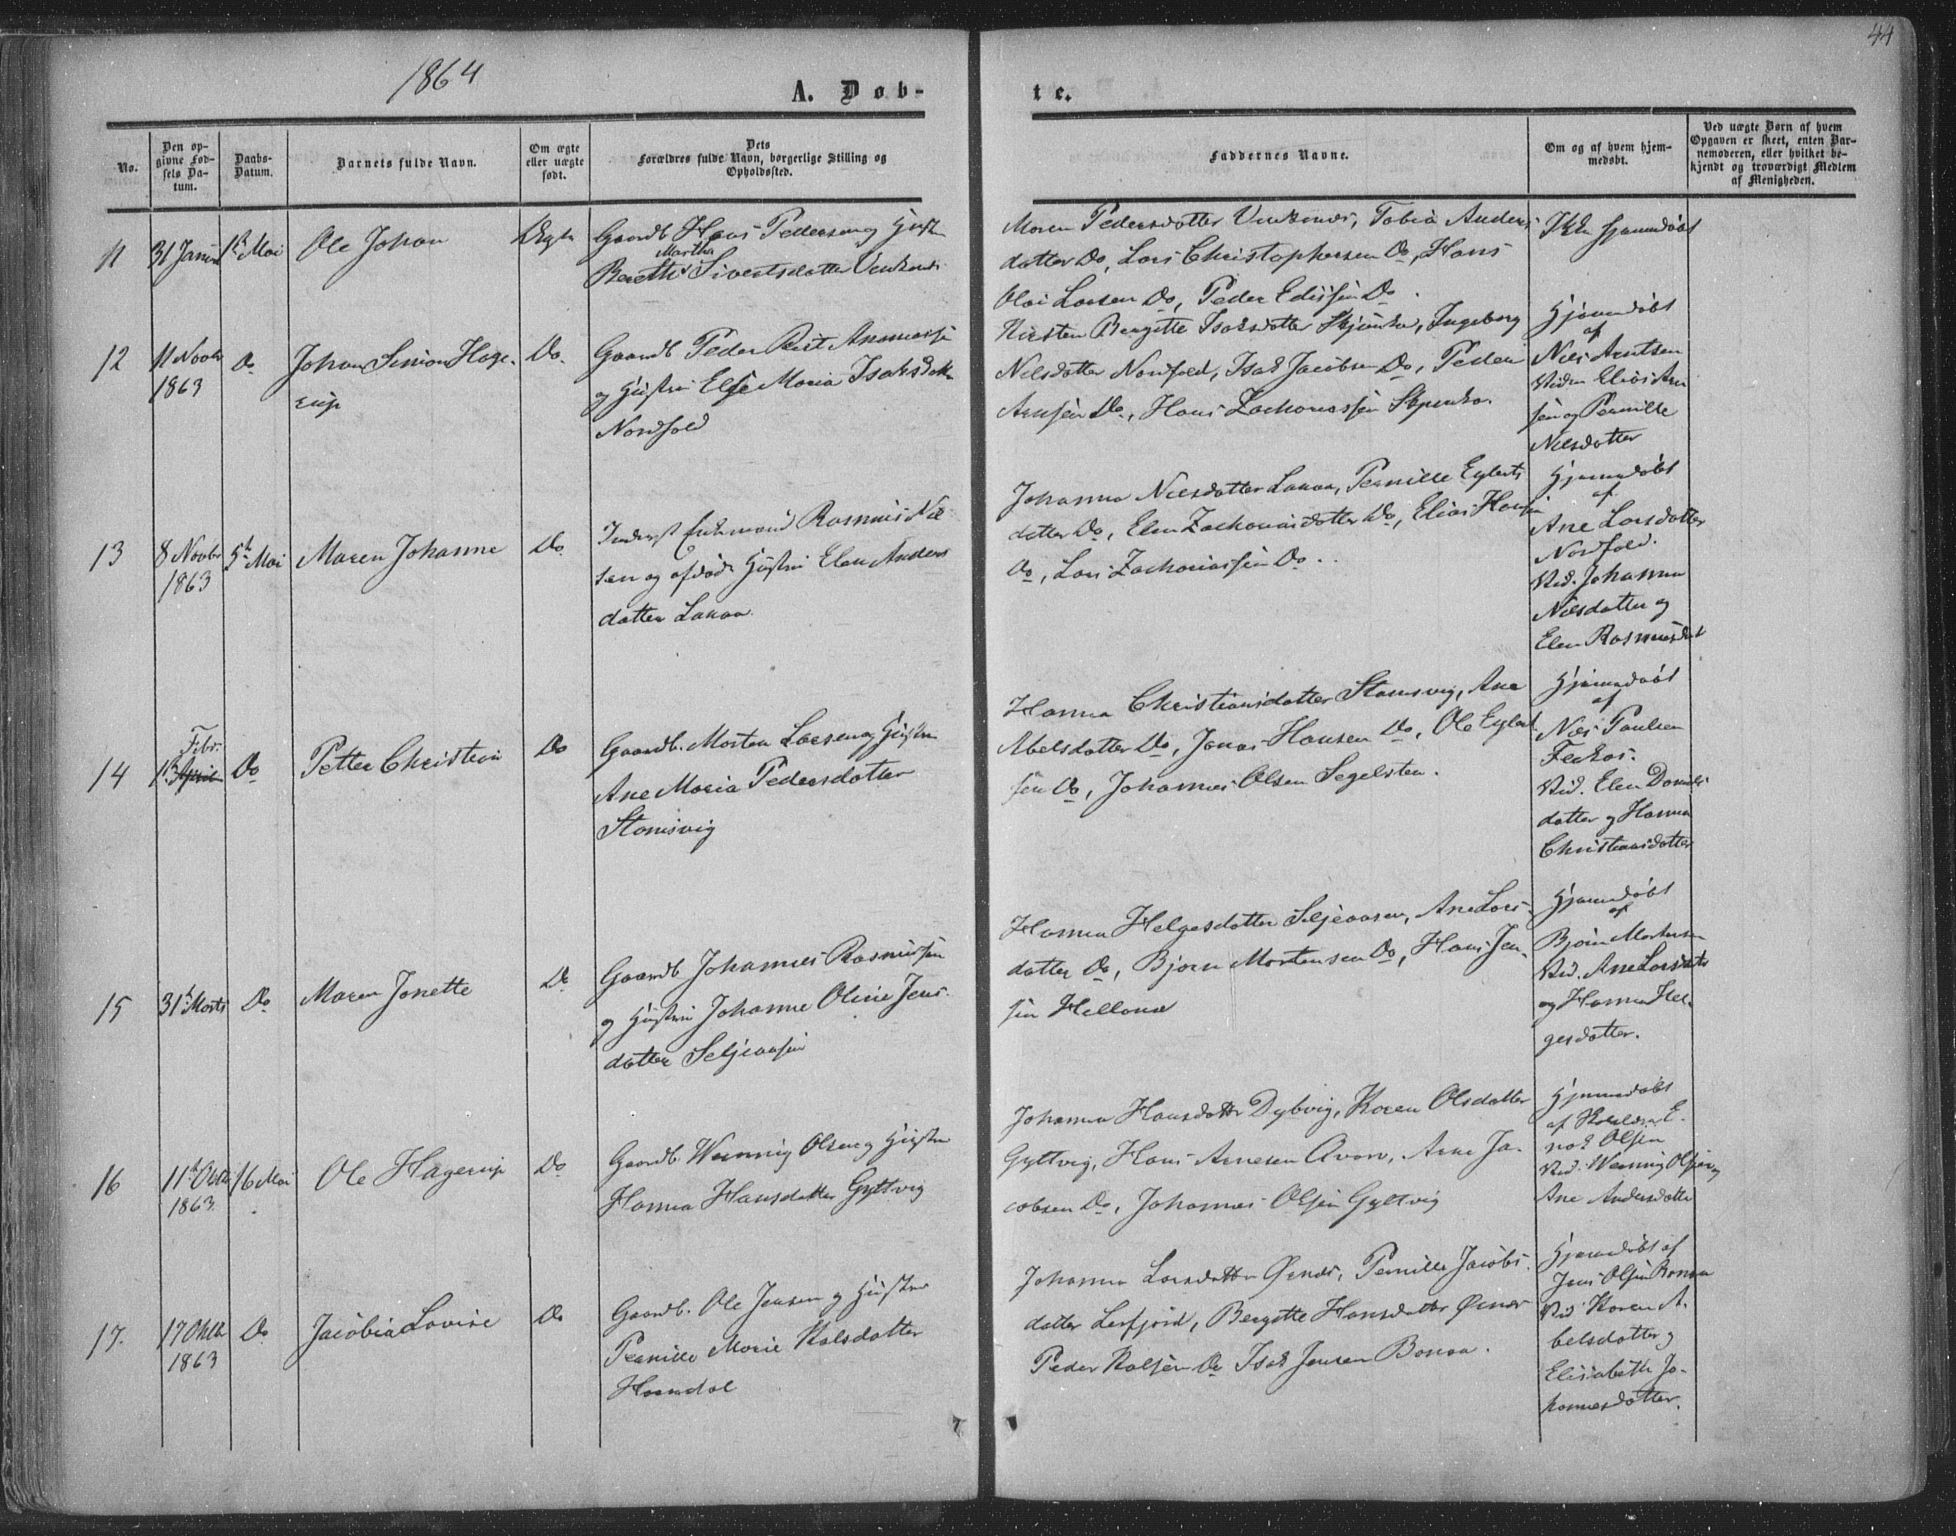 44
1864
A. Døb-
te.
No.
Den op-
givne Fød-
sels Da-
tum.
Daabs-
Datum.
Barnets fulde Navn.
Om ægte
eller uægte
født.
Dets
Forældres fulde Navn, borgerlige Stilling og
Opholdssted.
Faddernes Navne.
Om og af hvem hjem-
medøbt.
Ved uægte Børn af hvem
Opgaven er skeet, enten Bar-
nemoderen, eller hvilket be-
kjendt og troværdigt Medlem
af Menigheden.
11
31 Januar
1st Mai
Ole Johan
Ægte
Gaardb. Hans Pedersen og Hustr
Martha
Berethe Sivertsdatter
Maren Pedersdatter, Tobia Anders
datter Do, Lars Christophersen Do, Hans
Olai Larsen Do, Peder
Ikke hjemmedøbt
12
11 Novbr
1863
Do
Johan Simon Hage-
rup
Do.
Gaardb Peder
og Hustru Else Maria Isaksdatt
Nordfold
Kirsten Bergitte Isaksdatter, Ingeborg
Nilsdatter Nordfold, Isak Jacobsen Do, Peder
Arnsen Do, Hans Zachariassen
Hjemmedøbt
af
Nils Arntsen
Vidner Elias Arn
sen og Pernille
Nilsdatter
13
8 Novbr
1863
5te Mai
Maren Johanne
Do
Inderst Enkemand Rasmus Nil
sen og afdøde Hustru Elen Anders
datter Lakaa
Johanna Nilsdatter Lakaa, Pernille Eglerts
datter Do, Elen Zachariasdatter Do, Elias Hansen
Do, Lars Zachariassen Do.
Hjemmedøbt
af
Ane Larsdatter
Nordfold.
Vid. Johanna
Nilsdatter og
Elen Rasmusdat
14
Febr.
13 April
Do
Petter Christian
Do
Gaardb. Morten Larsen og Hustru
Ane Maria Pedersdatter
Stamsvig
Hanna Christiansdatter Stamsvig, Ane
Abelsdatter Do, Jonas Hansen Do, Ole Eglert
sen Do, Johannes Olsen Segelsten.
Hjemmedøbt
af
Nils Paulsen
Vid. Elen Daniels
datter og Hanna
Christiansdatter
15
31te Marts
Do
Maren Jonette
Do
Gaardb Johannes Rasmussen
og Hustru Johanne Oline Jens-
datter Seljeaasen
Hanna Helgesdatter Seljeaasen, Ane Lars-
datter Do, Bjørn Mortensen Do, Hans Jen-
sen
Hjemmedøbt
af
Bjørn Mortensen
Vid. Ane Larsdatter
og Hanna Hel-
gesdatter.
16
11te Octbr
1863
16 Mai
Ole Hagerup
Do
Gaardb. Wennig Olsen og Hustru
Hanna Hansdatter Gyltvig
Johanna Hansdatter Dybvig, Karen Olsdatter
Gyltvig, Hans Arnesen, Arne Ja-
cobsen Do, Johannes Olsen Gyltvig
Hjemmedøbt
af E-
nok Olsen
Vid. Wennig Olsen og
Ane Andersdatter
17.
17 Octbr
1863
Do
Jacobia Lovise
Do
Gaardb. Ole Jensen og Hustru
Pernille Marie Kalsdatter
Johanna Larsdatter Ørnæs, Pernille Jacobs-
datter Leifjord, Bergitte Hansdatter Ørnæs
Peder Kalsen Do Isak Jensen Bonaa.
Hjemmedøbt af
Jens Olsen Bonaa
Vid Karen A-
belsdatter og
Elisabeth Jo-
hannesdatter.